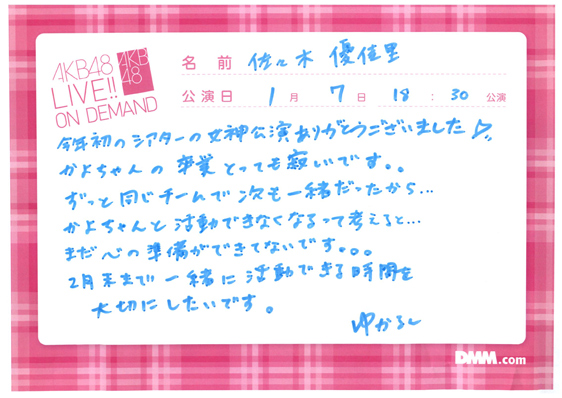 AKB48
LIVE!!
ON DEMAND
AKB
48
名前 佐々木 優佳里
公演日 1月 7日 18:30 公演
今年初のシアターの女神公演ありがとうございました♪
かよちゃんの 卒業 とっても寂いです。。
ずっと同じチームで次も一緒だったから...
かよちゃんと活動できなくなるって考えると...
まだ心の準備ができてないです。。。
2月末まで一緒に活動できる時間を
大切にしたいです。
ゆかるん
DMM.com